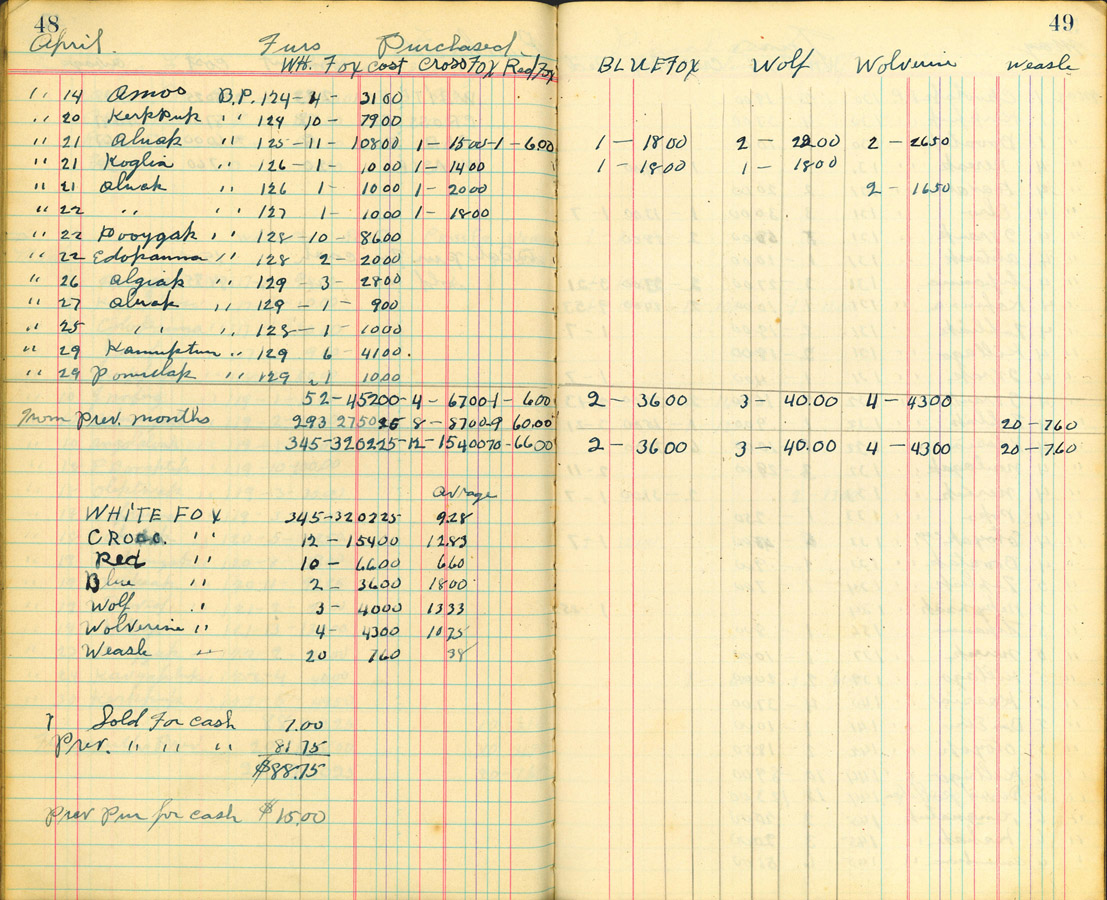 48
April. Furs Purchased
Wh. Fox Cost Cross Fox Red Fox
" 14 Amos B.P. 124 - 4 - 3100
" 20 Kerppuk " " 124 10 - 7900
" 21 Aluak " 125 - 11 - 10800 1 - 1500 - 1 - 600
" 21 Koglia " " 126 - 1 1000 1 - 1400
" 21 Aluak " 126 1 - 1000 1 - 2000
" 22 " " " 127 1 - 1000 1 - 1800
" 22 Pooygak " " 128 - 10 - 8600
" 22 Edopanna " " 128 2 - 2000
" 26 Algiak " " 129 - 3 - 2800
" 27 Aluak " " 129 - 1 - 900
" 25 " " " 128 - 1 - 1000
" 29 Kamuptun " " 129 6 - 4100.
" 29 " " 129 1 1000
52 - 45200 - 4 - 6700 - 1 - 600
From Prev. months 293 275025 8 - 8700 - 9 60.00
345 - 320225 - 12 - 15400 10 - 6600
Avrage
WHITE FOX 345 - 320225 928
CROSS. " 12 - 15400 1283
Red " 10 - 6600 660
Blue " 2 - 3600 1800
Wolf " 3 - 4000 1333
Wolverine " 4 - 4300 1075
Weasle " 20 760 38
Sold For cash 7.00
Prev. " " " 81 75
$88.75
Prev Pur for cash $15.00
49
BLUE FOX Wolf Wolverine Weasle
1 - 1800 2 - 2200 2 - 2650
1 - 1800 1 - 1800
2 - 1650
2 - 3600 3 - 40.00 4 - 4300
20 - 760
2 - 3600 3 - 40.00 4 - 4300 20 - 7.60